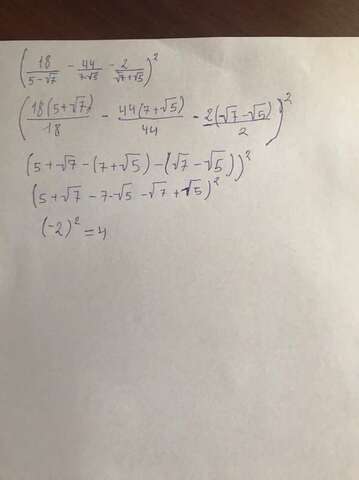 (18/(5-√7) - 44/(7-√5) - 2/(√7+√5))²
(18(5+√7)/18 - 44(7+√5)/44 - 2(√7-√5)/2)²
(5+√7-(7+√5)-(√7-√5))²
(5+√7-7-√5-√7+√5)²
(-2)²=4